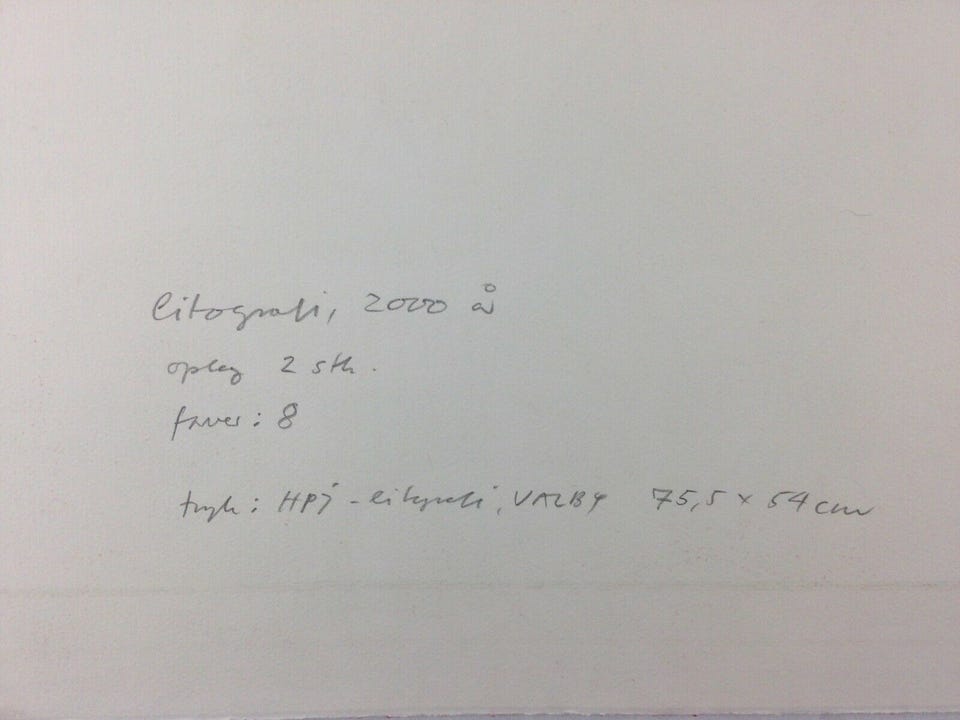 litografi, 2000 år
oplag 2 stk.
farver: 8
tryk: HPJ - litografi, VALBY 75,5 x 54 cm